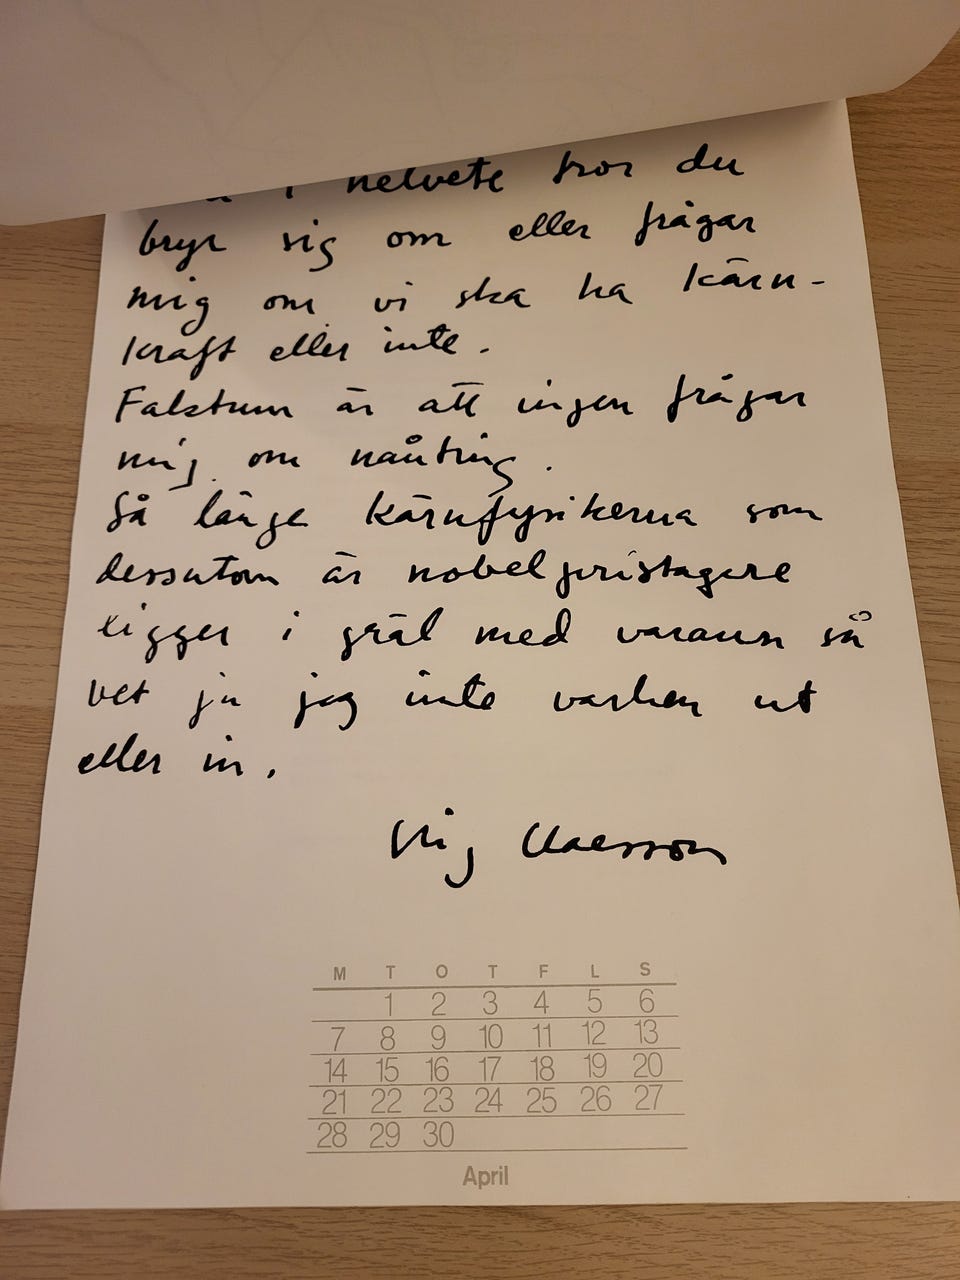 i helvete tror du
bryr sig om eller frågar
mig om vi ska ha kärn-
kraft eller inte.
Faktum är att ingen frågar
mig om nånting.
Så länge kärnfysikerna som
dessutom är nobelpristagere
ligger i gräl med varann så
vet ju jag inte varken ut
eller in.
Stig Claesson
M T O T F L S
1 2 3 4 5 6
7 8 9 10 11 12 13
14 15 16 17 18 19 20
21 22 23 24 25 26 27
28 29 30
April